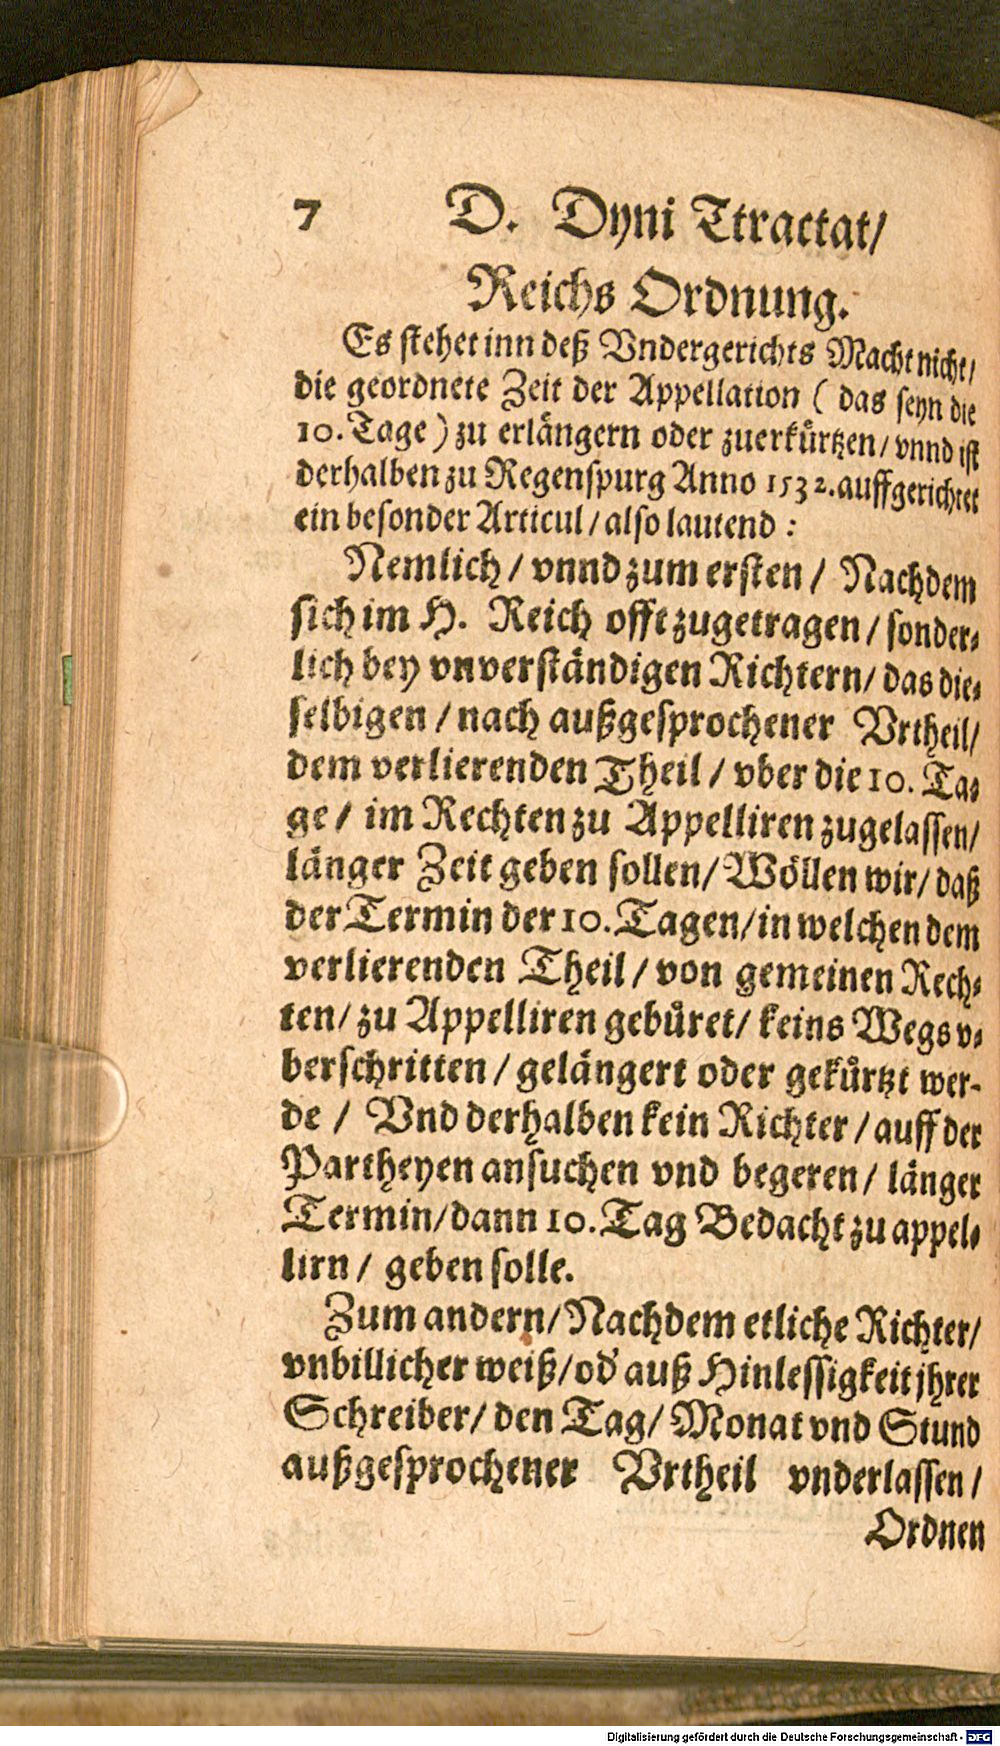 7 D. Dyni Ttractat/
Reichs Ordnung.
Es stehet inn deß Vndergerichts Macht nicht/
die geordnete Zeit der Appellation ( das seyn die
10. Tage ) zu erlängern oder zuerkuͤrtzen/ vnnd ist
derhalben zu Regenspurg Anno 1532. auffgerichtet
ein besonder Articul / also lautend :
Nemlich / vnnd zum ersten / Nachdem
sich im H. Reich offt zugetragen / sonder⸗
lich bey vnverständigen Richtern/ das die⸗
selbigen / nach außgesprochener Vrtheil/
dem verlierenden Theil / vber die 10. Ta⸗
ge / im Rechten zu Appelliren zugelassen/
länger Zeit geben sollen/ Wöllen wir/ daß
der Termin der 10. Tagen/ in welchen dem
verlierenden Theil / von gemeinen Rech⸗
ten/ zu Appelliren gebuͤret/ keins Wegs v⸗
berschritten / gelängert oder gekuͤrtzt wer-
de / Vnd derhalben kein Richter / auff der
Partheyen ansuchen vnd begeren / länger
Termin/ dann 10. Tag Bedacht zu appel⸗
lirn / geben solle.
Zum andern/ Nachdem etliche Richter/
vnbillicher weiß/ od' auß Hinlessigkeit jhrer
Schreiber/ den Tag/ Monat vnd Stund
außgesprochener Vrtheil vnderlassen /
Ordnen
Digitalisierung gefördert durch die Deutsche Forschungsgemeinschaft - DFG